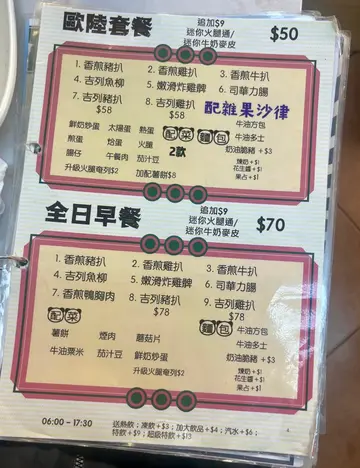 歐陸套餐
追加$9
迷你火腿通/
迷你牛奶麥皮
$50
1. 香煎豬扒 2. 香煎雞扒 3. 香煎牛扒
4. 吉列魚柳 5. 嫩滑炸雞髀 6. 司華力腸
7. 吉列豬扒 8. 吉列雞扒 配雜果沙律
$58 $58
配菜 麵包
2款
鮮奶炒蛋 太陽蛋 熱蛋
煎蛋 烚蛋 火腿
腸仔 午餐肉 茄汁豆
升級火腿奄列$2 加配薯餅$8
牛油方包
牛油多士
奶油脆豬 +$3
煉奶+$1
花生醬+$1
果占+$1
全日早餐
追加$9
迷你火腿通/
迷你牛奶麥皮
$70
1. 香煎豬扒 2. 香煎雞扒 3. 香煎牛扒
4. 吉列魚柳 5. 嫩滑炸雞髀 6. 司華力腸
7. 香煎鴨胸肉 8. 吉列豬扒 9. 吉列雞扒
$78 $78
配菜 麵包
薯餅 煙肉 蘑菇片
牛油粟米 茄汁豆 鮮奶炒蛋
升級火腿奄列$2
牛油方包
牛油多士
奶油脆豬 +$3
煉奶+$1
花生醬+$1
果占+$1
06:00 - 17:30
送熱飲;凍飲+$3;加大飲品+$4;汽水+$6;
特飲+$9;超級特飲+$13
4